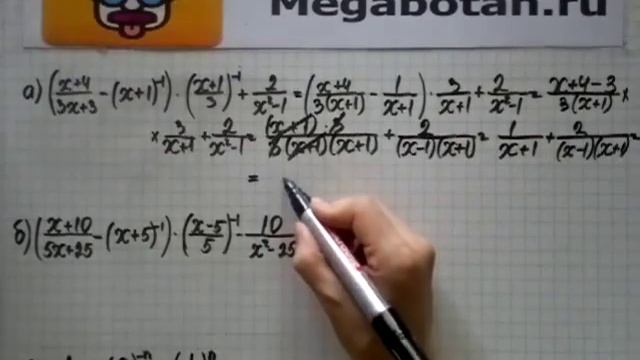 Megabotan.ru
а) ((x+4)/(3x+3) - (x+1)⁻¹) · ((x+1)/3)⁻¹ + 2/(x²-1) = ((x+4)/(3(x+1)) - 1/(x+1)) · 3/(x+1) + 2/(x²-1) = (x+4-3)/(3(x+1)) ×
× 3/(x+1) + 2/(x²-1) = ((x+1)·3)/(3(x+1)(x+1)) + 2/((x-1)(x+1)) = 1/(x+1) + 2/((x-1)(x+1)) =
=
б) ((x+10)/(5x+25) - (x+5)⁻¹) · ((x-5)/5)⁻¹ - 10/(x²-25